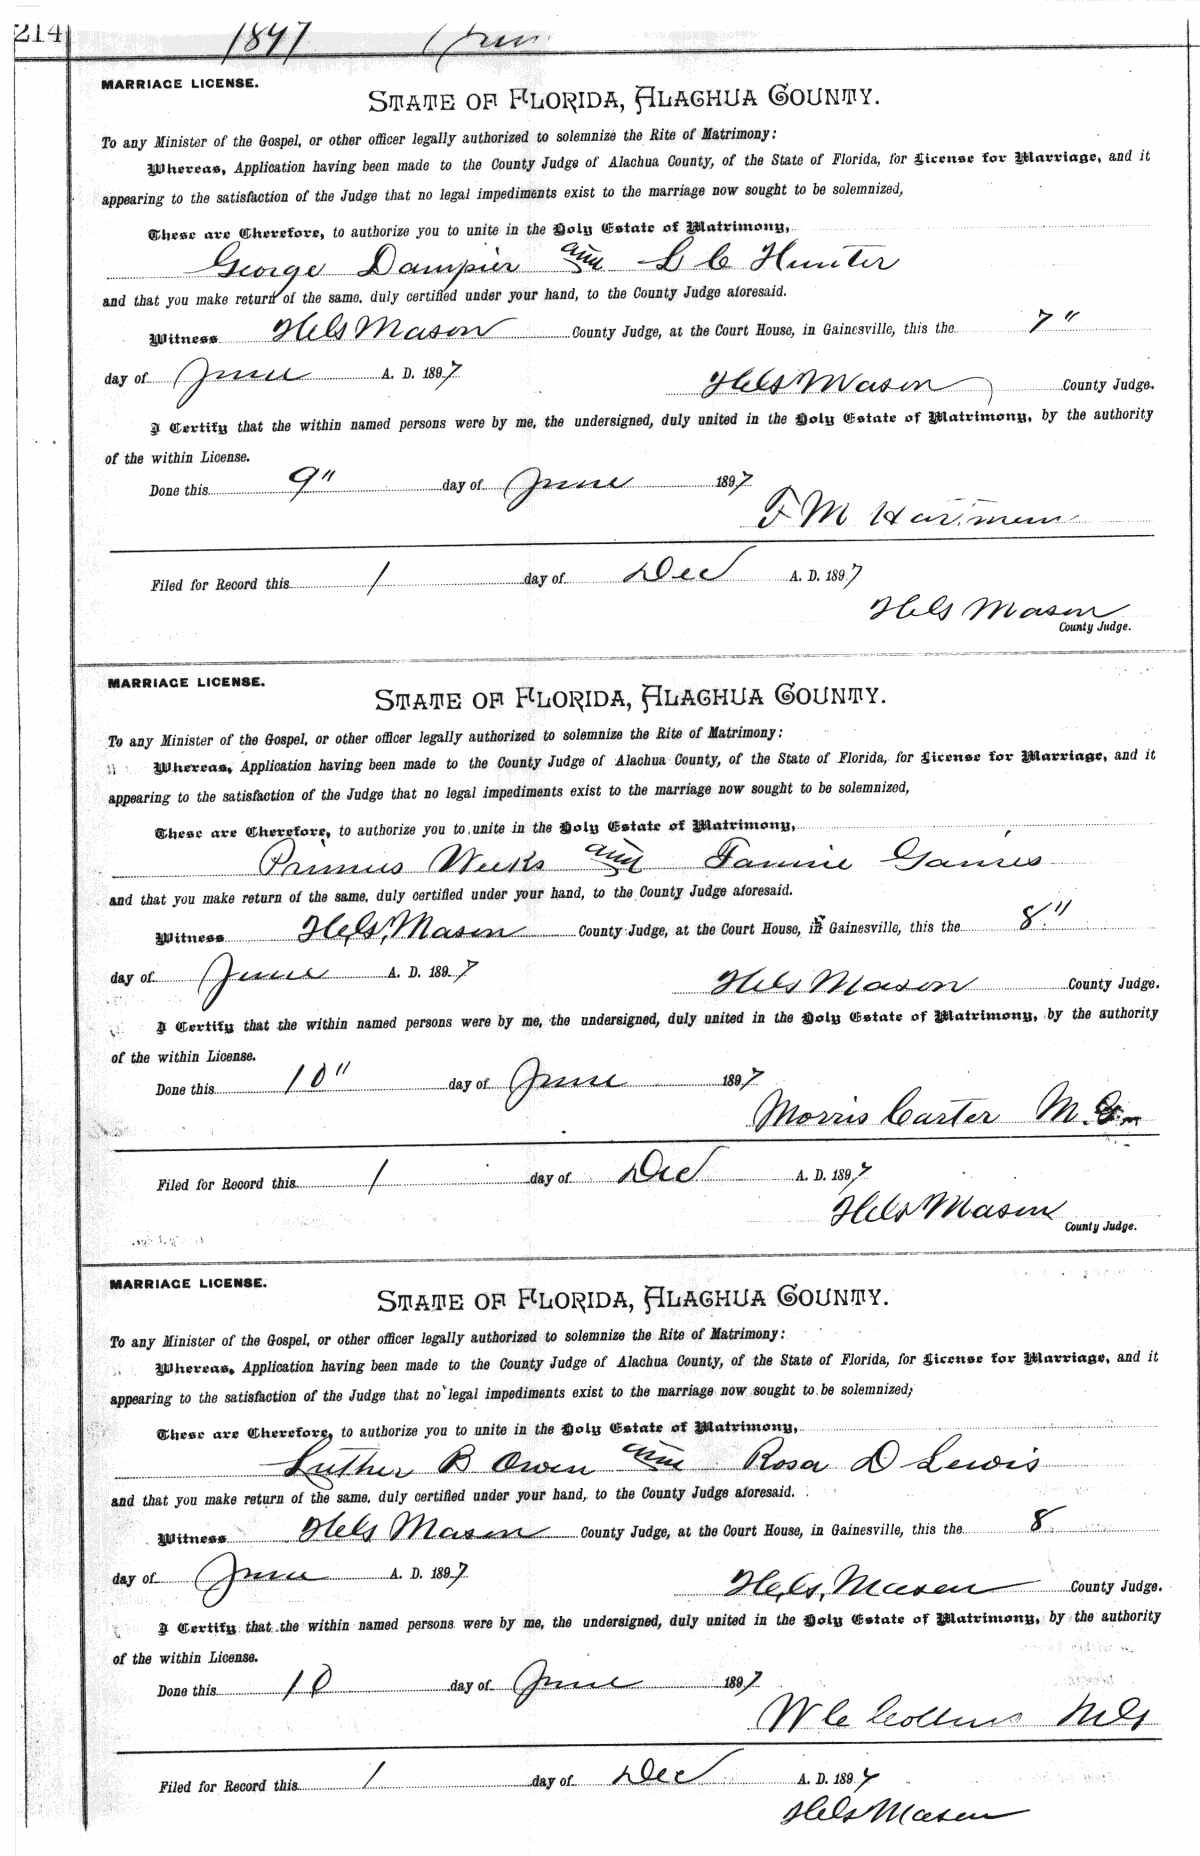 214 1897 June
MARRIAGE LICENSE.
STATE OF FLORIDA, ALACHUA COUNTY.
To any Minister of the Gospel, or other officer legally authorized to solemnize the Rite of Matrimony:
Whereas, Application having been made to the County Judge of Alachua County, of the State of Florida, for License for Marriage, and it
appearing to the satisfaction of the Judge that no legal impediments exist to the marriage now sought to be solemnized,
These are Therefore, to authorize you to unite in the Holy Estate of Matrimony,
George Dampier and L C Hunter
and that you make return of the same, duly certified under your hand, to the County Judge aforesaid.
Witness H.G. Mason County Judge, at the Court House, in Gainesville, this the 7"
day of June A. D. 1897
H.G. Mason County Judge.
I Certify that the within named persons were by me, the undersigned, duly united in the Holy Estate of Matrimony, by the authority
of the within License.
Done this 9" day of June 1897
F M Hartman
Filed for Record this 1 day of Dec A. D. 1897
H.G. Mason
County Judge.
MARRIAGE LICENSE.
STATE OF FLORIDA, ALACHUA COUNTY.
To any Minister of the Gospel, or other officer legally authorized to solemnize the Rite of Matrimony:
Whereas, Application having been made to the County Judge of Alachua County, of the State of Florida, for License for Marriage, and it
appearing to the satisfaction of the Judge that no legal impediments exist to the marriage now sought to be solemnized,
These are Therefore, to authorize you to unite in the Holy Estate of Matrimony,
Primus Weeks and Fannie Gaines
and that you make return of the same, duly certified under your hand, to the County Judge aforesaid.
Witness H.G. Mason County Judge, at the Court House, in Gainesville, this the 8"
day of June A. D. 1897
H.G. Mason County Judge.
I Certify that the within named persons were by me, the undersigned, duly united in the Holy Estate of Matrimony, by the authority
of the within License.
Done this 10" day of June 1897
Morris Carter M.G.
Filed for Record this 1 day of Dec A. D. 1897
H.G. Mason
County Judge.
MARRIAGE LICENSE.
STATE OF FLORIDA, ALACHUA COUNTY.
To any Minister of the Gospel, or other officer legally authorized to solemnize the Rite of Matrimony:
Whereas, Application having been made to the County Judge of Alachua County, of the State of Florida, for License for Marriage, and it
appearing to the satisfaction of the Judge that no legal impediments exist to the marriage now sought to be solemnized,
These are Therefore, to authorize you to unite in the Holy Estate of Matrimony,
Luther B Owen and Rosa D Lewis
and that you make return of the same, duly certified under your hand, to the County Judge aforesaid.
Witness H.G. Mason County Judge, at the Court House, in Gainesville, this the 8
day of June A. D. 1897
H.G. Mason County Judge.
I Certify that the within named persons were by me, the undersigned, duly united in the Holy Estate of Matrimony, by the authority
of the within License.
Done this 10 day of June 1897
W C Collins MG
Filed for Record this 1 day of Dec A. D. 1897
H.G. Mason